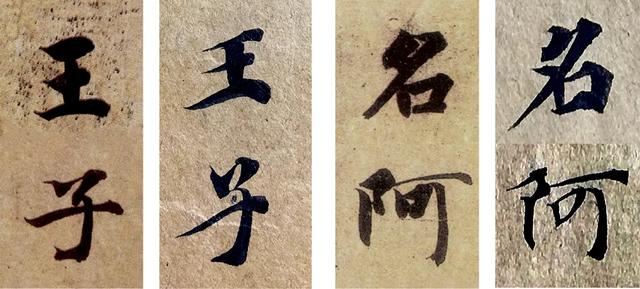 王子
王子
名阿
名阿